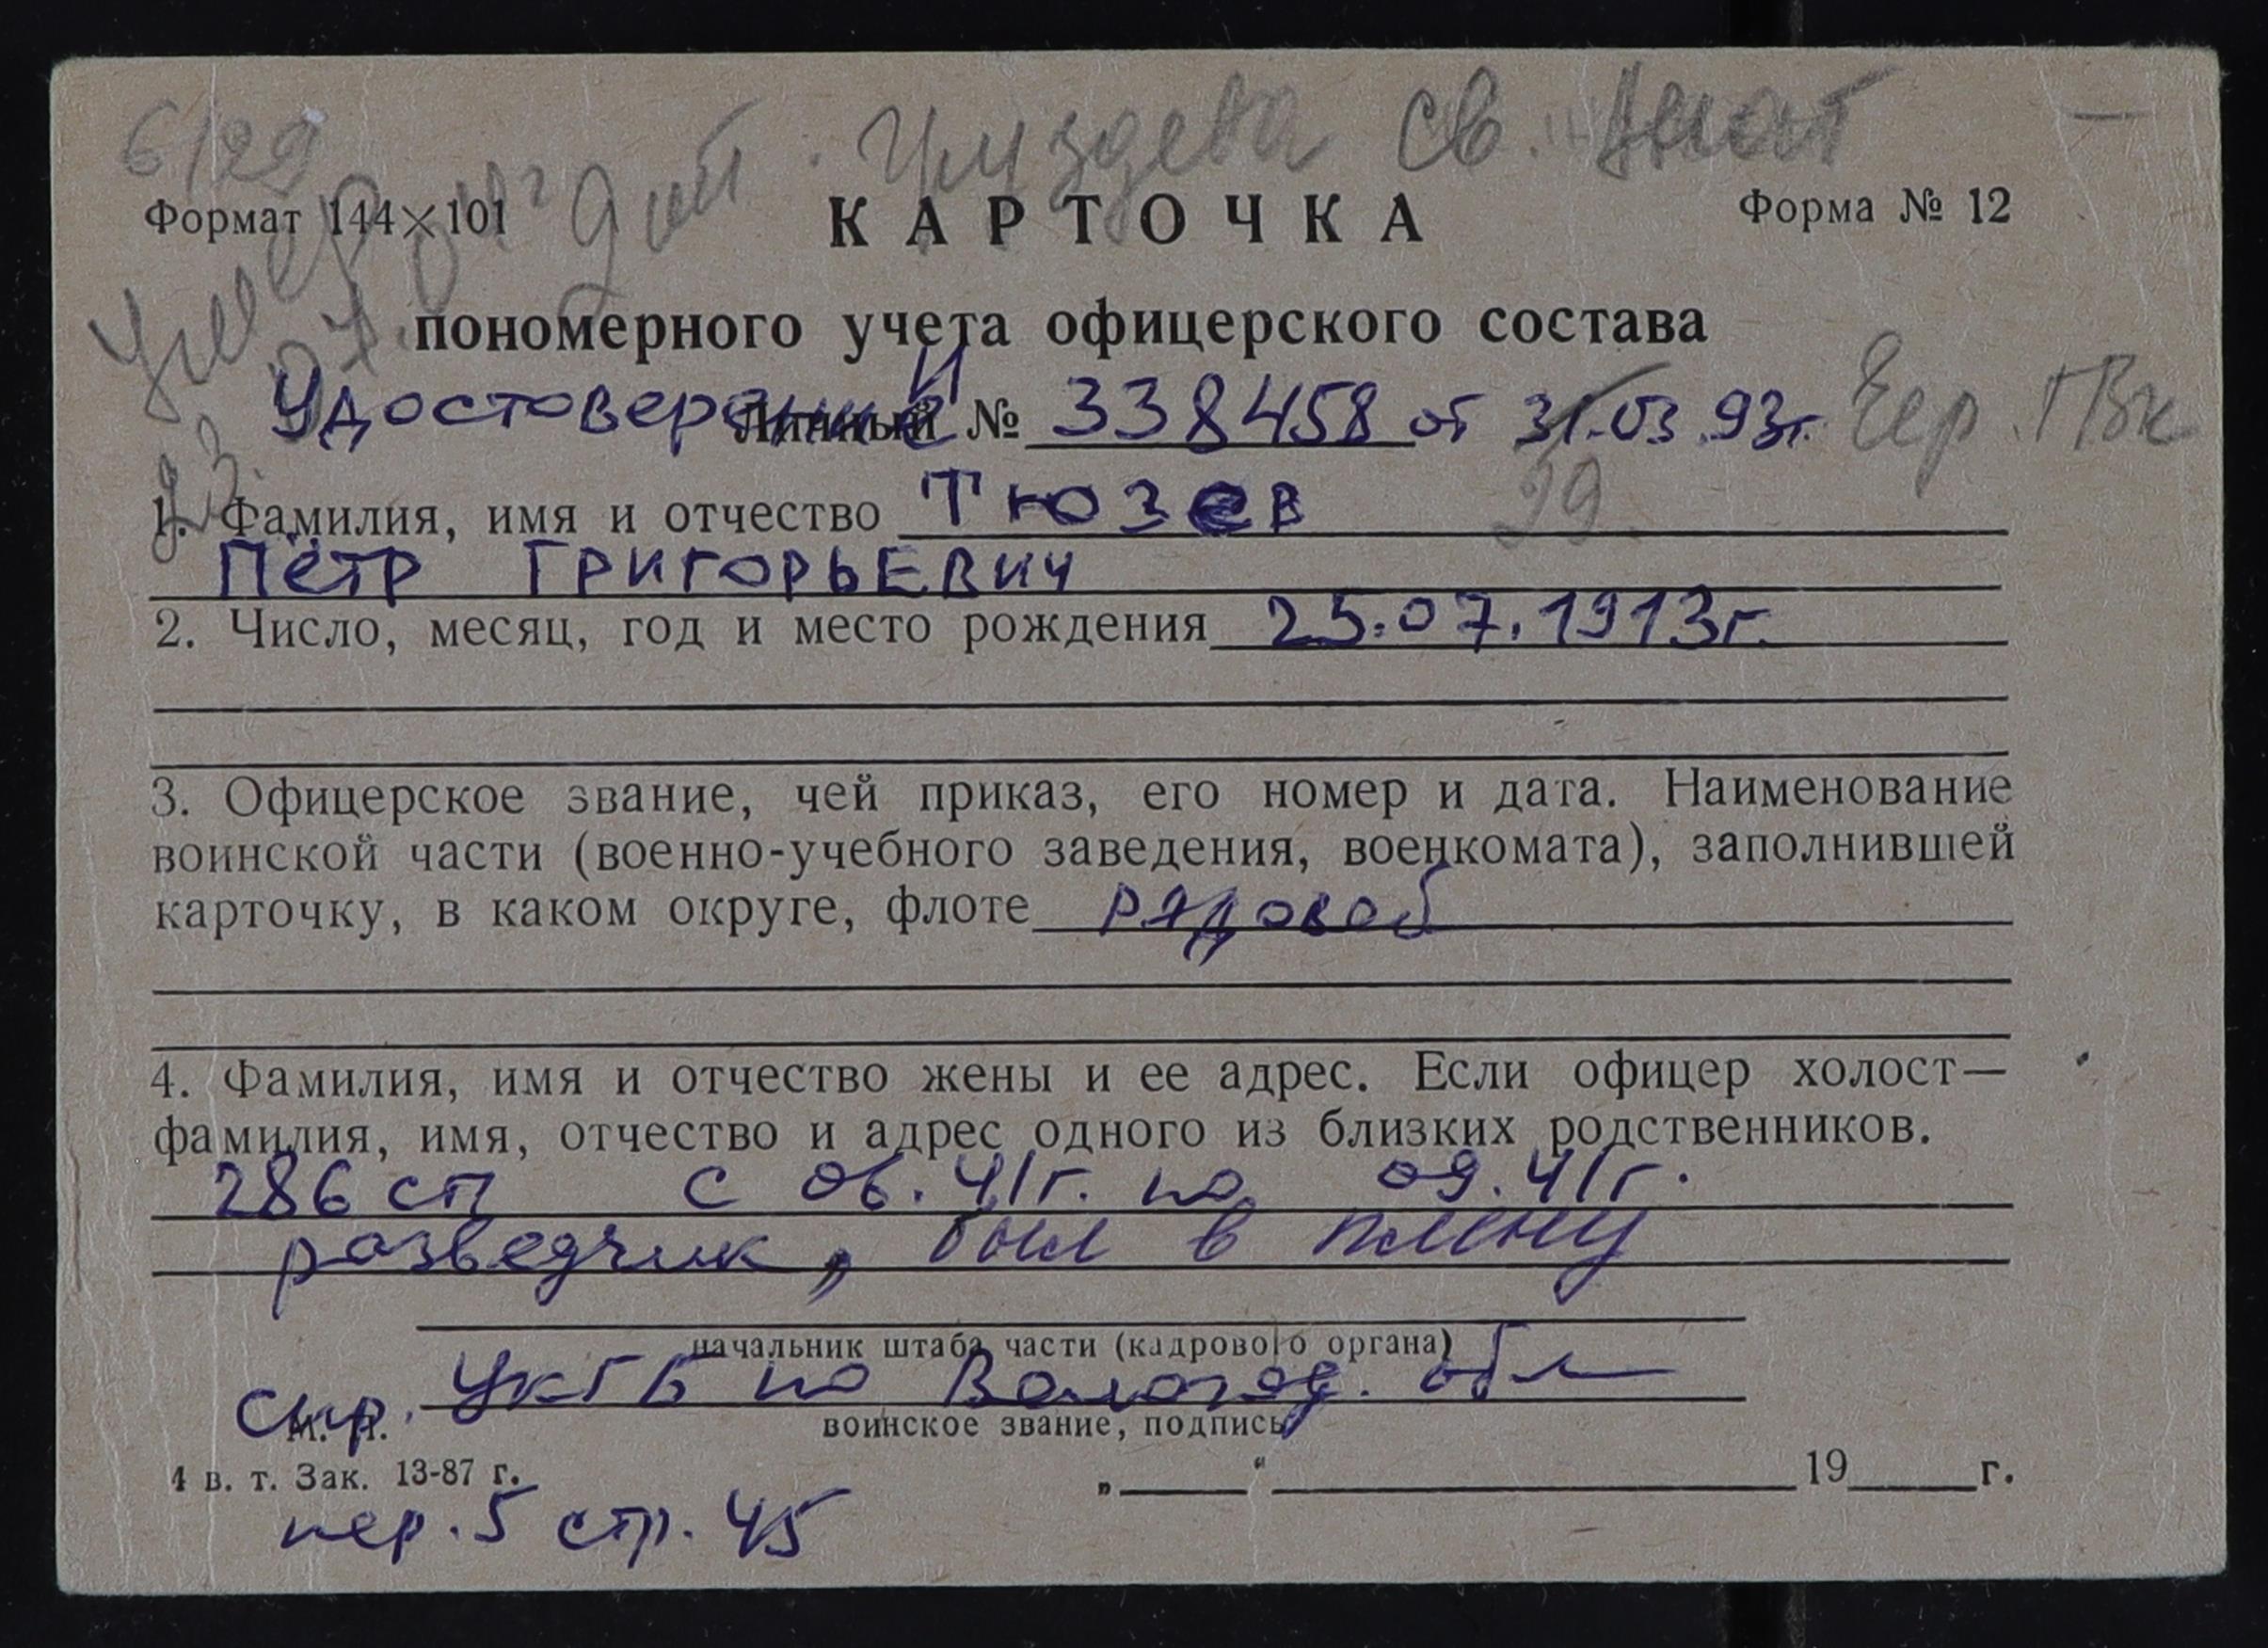 6/29
Умер
Формат 144×101
КАРТОЧКА
Форма № 12
пономерного учета офицерского состава
Удостоверение Личный № 338458 от 31.03.93г. Чер. ГВк
29
1. Фамилия, имя и отчество Тюзев
Пётр Григорьевич
2. Число, месяц, год и место рождения 25.07.1913г.
3. Офицерское звание, чей приказ, его номер и дата. Наименование
воинской части (военно-учебного заведения, военкомата), заполнившей
карточку, в каком округе, флоте рядовой
4. Фамилия, имя и отчество жены и ее адрес. Если офицер холост—
фамилия, имя, отчество и адрес одного из близких родственников.
286 сп с 06.41г. по 09.41г.
разведчик, был в плену
начальник штаба части (кадрового органа)
спр. УКГБ по Вологод. обл
М. П.
воинское звание, подпись
4 в. т. Зак. 13-87 г.
„ “ 19 г.
пер. 5 стр. 45